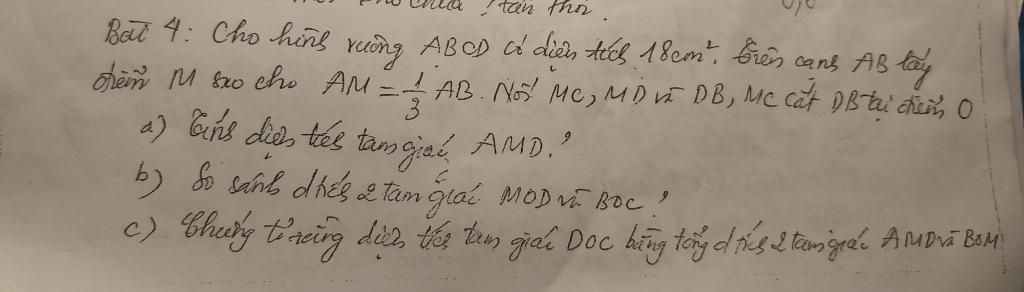 tân thời.
Bài 4: Cho hình vuông ABCD có diện tích 18cm². Trên cạnh AB lấy
điểm M sao cho AM = 1/3 AB. Nối MC, MD và DB, MC cắt DB tại điểm O
a) Tính diện tích tam giác AMD?
b) So sánh dtích 2 tam giác MOD và BOC?
c) Chứng tỏ rằng diện tích tam giác DOC bằng tổng dtích 2 tam giác AMD và BOM